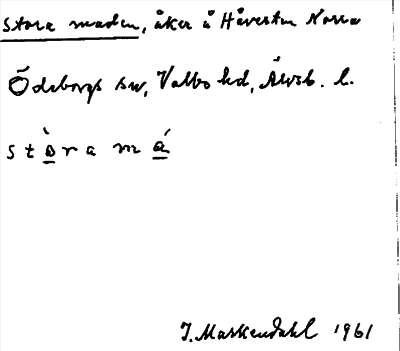 Stora maden, åker å Håvestun Norra
Ödeborgs sn, Valbo hd, Älvsb. l.
stòra má
J. Markendahl 1961